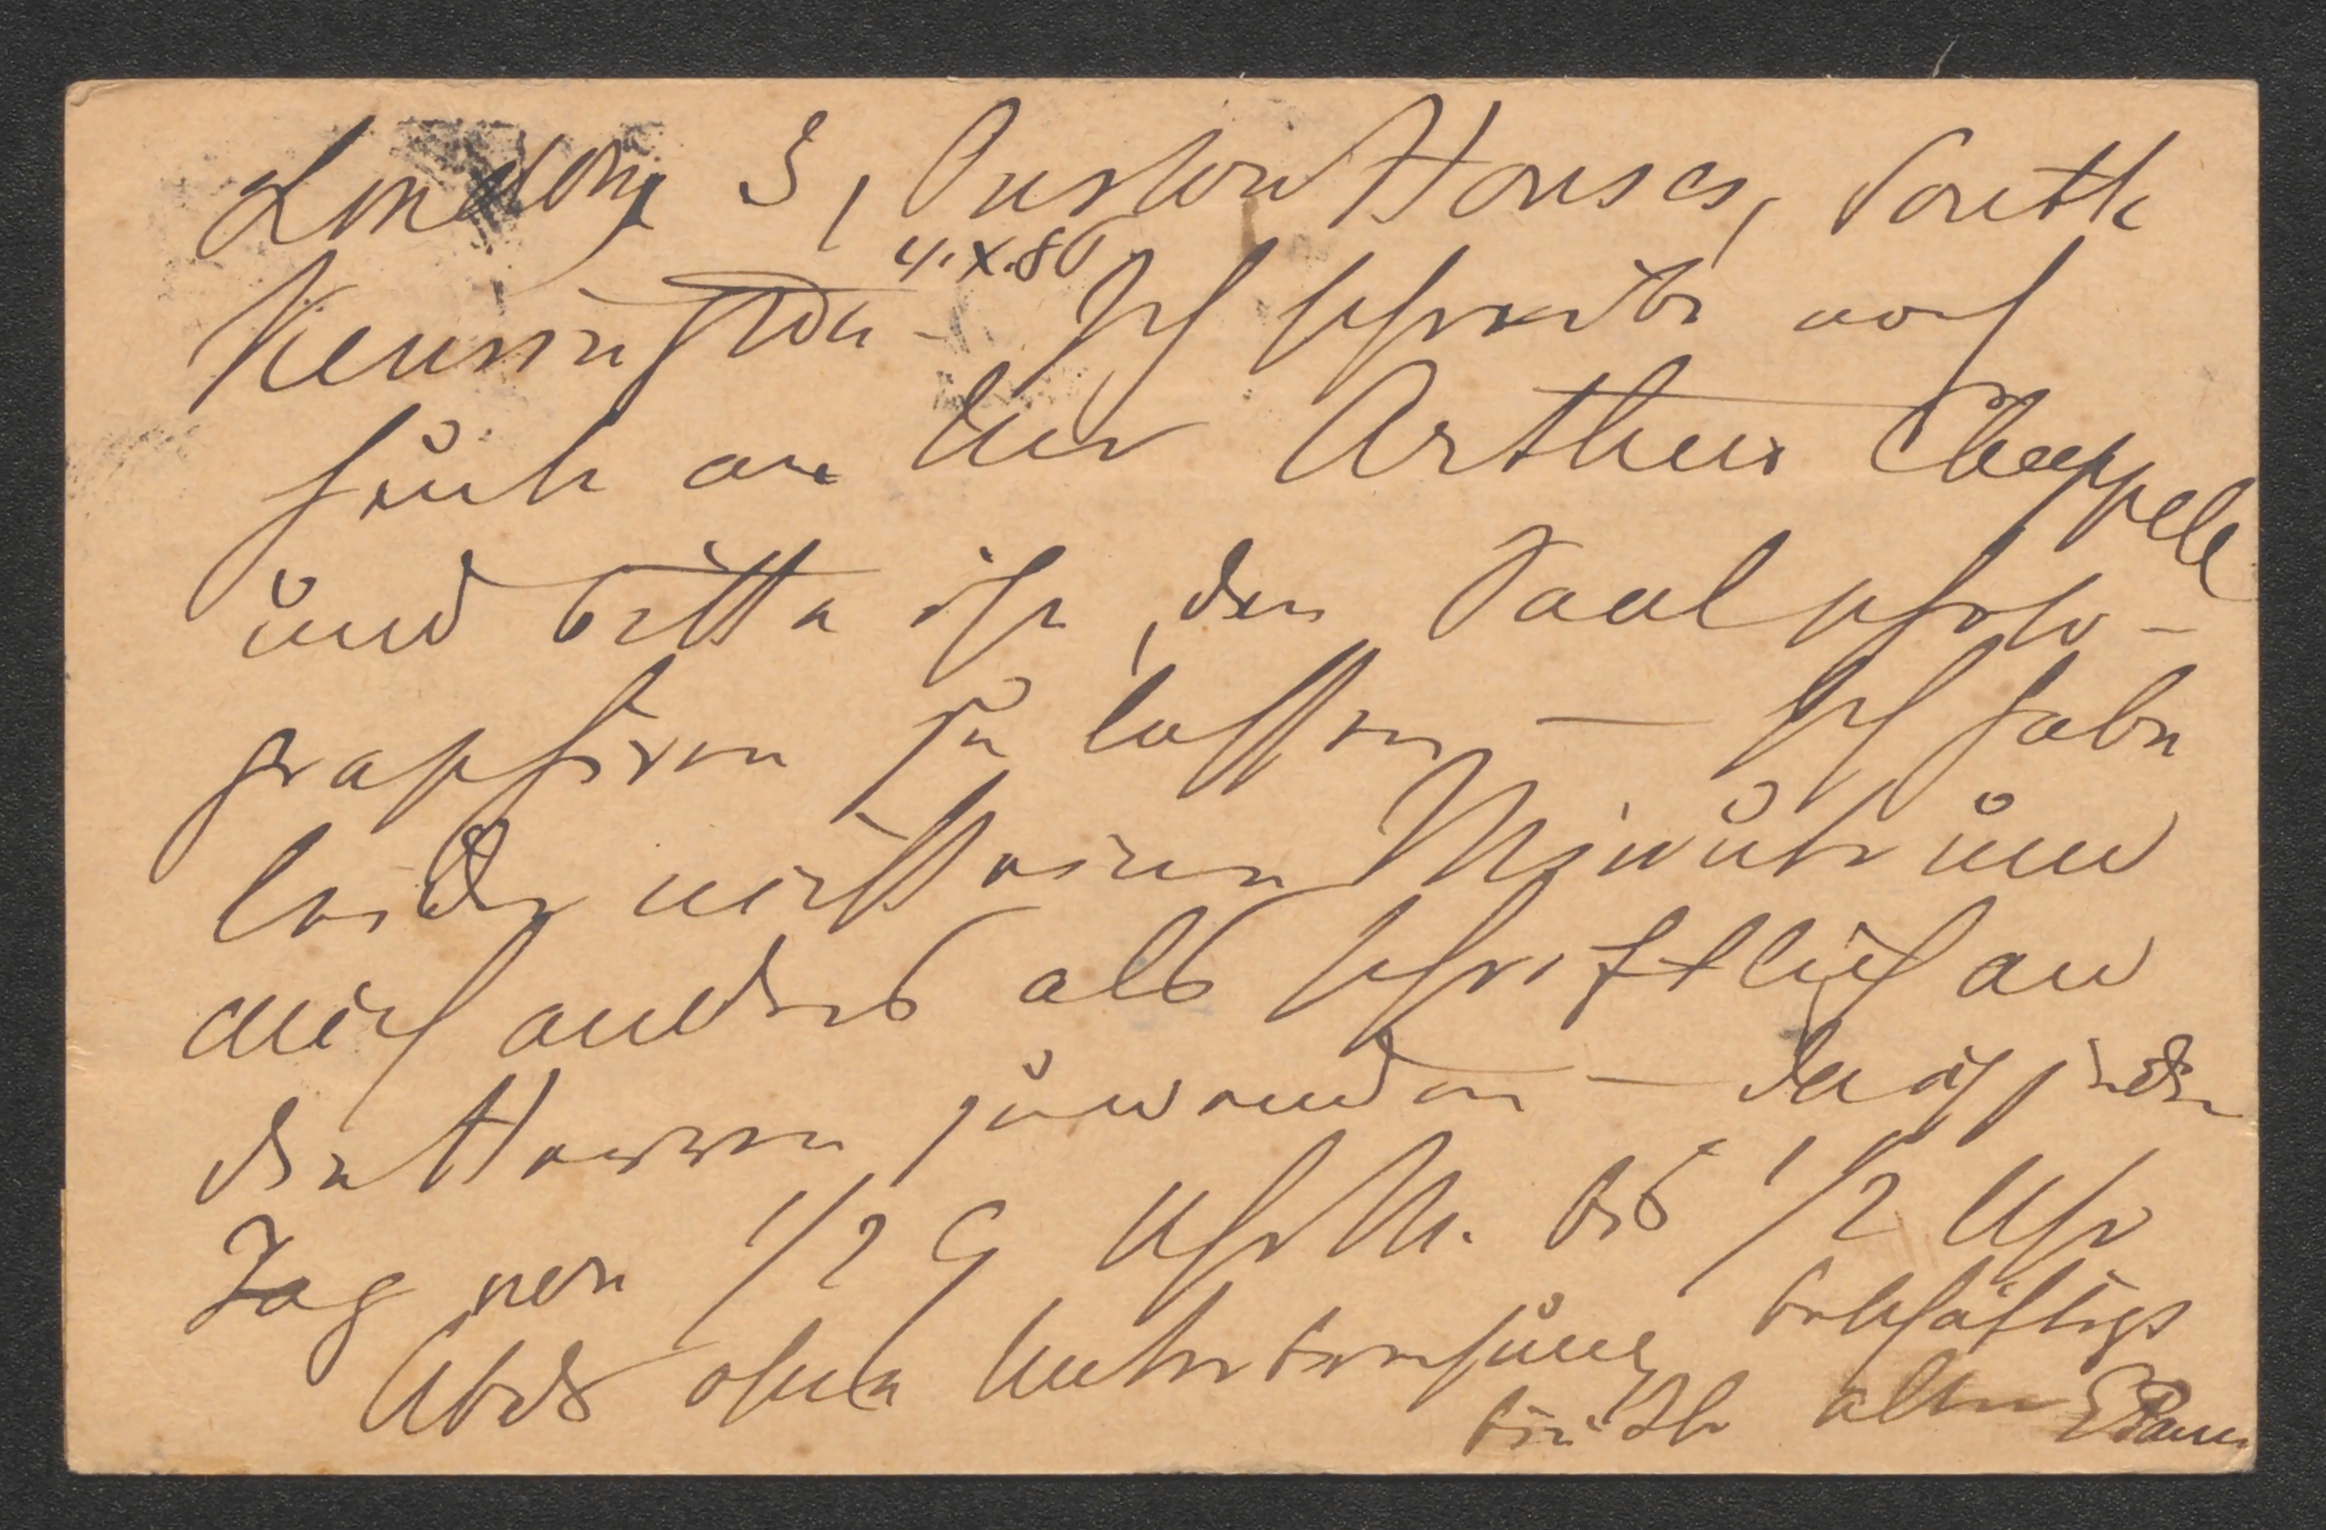 London, 3, Onslow Houses, South
4.X.80
Kensington – Ich schreibe noch
heute an Mr Arthur Chappell
und bitte ihn, den Saal photo-
graphiren zu lassen – Ich habe
leider nicht eine Minute um
mich anders als schriftlich an
den Herren zu wenden – da ich jeden
Tag von 1/2 9 Uhr M. bis 1/2 Uhr
Abds ohne Unterbrechung beschäftigt
bin Ihr alter EPauer